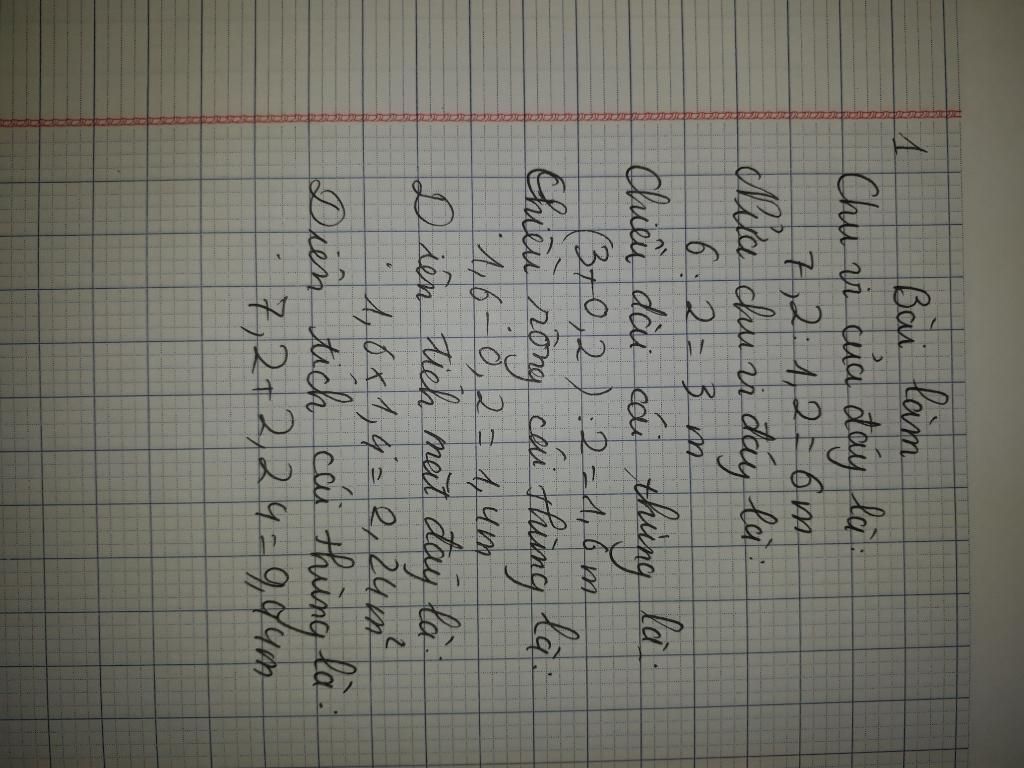 1
Bài làm
Chu vi của đáy là:
7,2 : 1,2 = 6m
Nửa chu vi đáy là:
6 : 2 = 3 m
Chiều dài cái thùng là:
(3+0,2) : 2 = 1,6 m
Chiều rộng cái thùng là:
1,6 - 0,2 = 1,4m
Diện tích mặt đáy là:
1,6 x 1,4 = 2,24m²
Diện tích cái thùng là:
7,2 + 2,24 = 9,44m